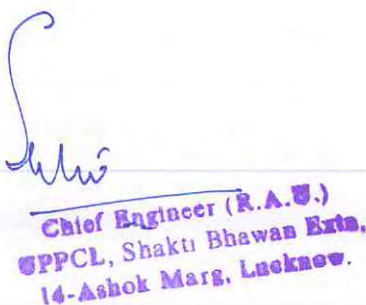 Chief Engineer (R.A.U.)
UPPCL, Shakti Bhawan Extn,
14-Ashok Marg, Lucknow.